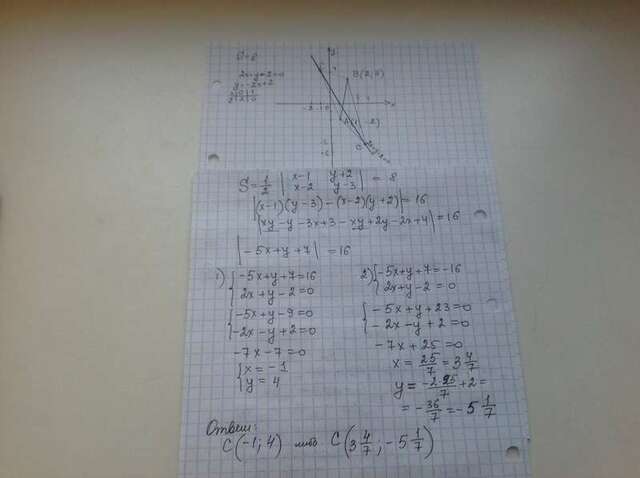 S=8
2x+y-2=0
y=-2x+2
B(2;3)
C
S=1/2 |x-1 y+2| = 8
|x-2 y-3|
|(x-1)(y-3)-(x-2)(y+2)|=16
|xy-y-3x+3-xy+2y-2x+4|=16
|-5x+y+7|=16
1) {-5x+y+7=16
2x+y-2=0
{-5x+y-9=0
-2x-y+2=0
-7x-7=0
{x=-1
y=4
2) {-5x+y+7=-16
2x+y-2=0
{-5x+y+23=0
-2x-y+2=0
-7x+25=0
x=25/7=3 4/7
y=-2·25/7+2=
=-36/7=-5 1/7
Ответ:
C(-1;4) либо C(3 4/7;-5 1/7)